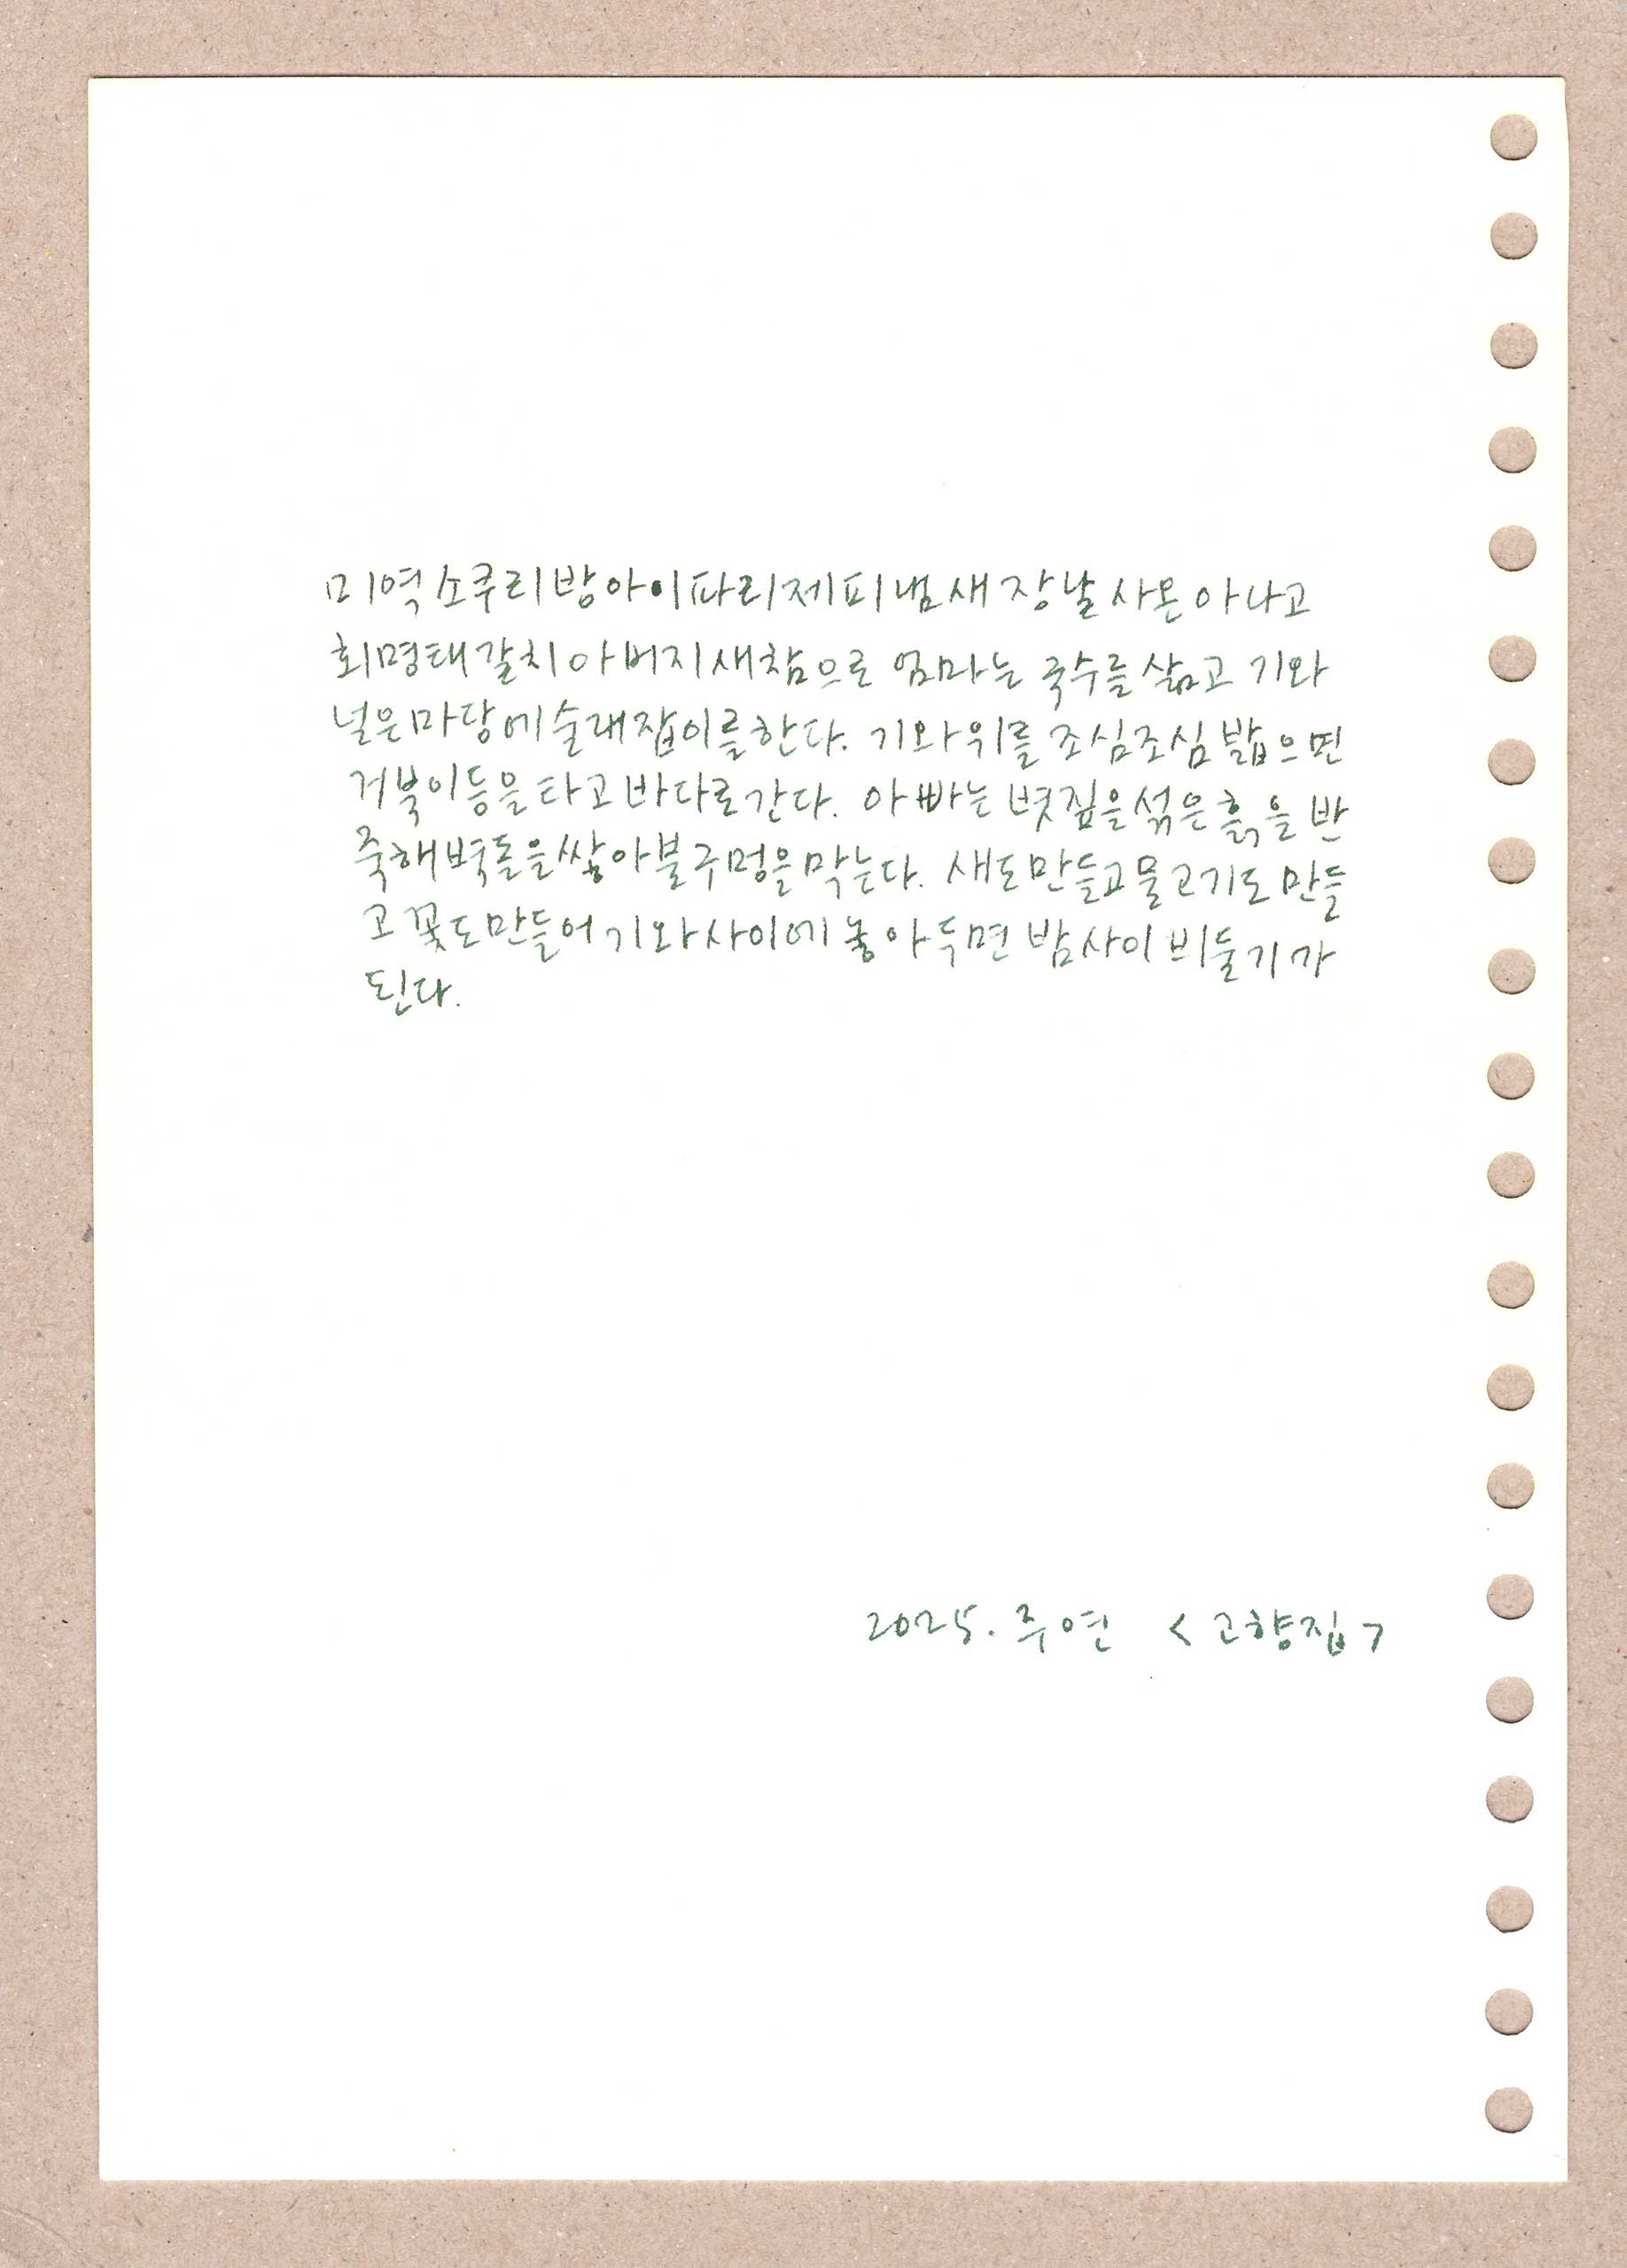 미역 소쿠리 방아 이파리 제피 냄새 장날 사온 아나고
회 명태 갈치 아버지 새참으로 엄마는 국수를 삶고 기와
널은 마당에 술래잡이를 한다. 기와 위를 조심조심 밟으면
거북이 등을 타고 바다로 간다. 아빠는 볏짚을 섞은 흙을 반
죽해 벽돌을 쌓아 불구멍을 막는다. 새도 만들고 물고기도 만들
고 꽃도 만들어 기와 사이에 놓아두면 밤사이 비둘기가
된다.
2025. 주연 <고향집>